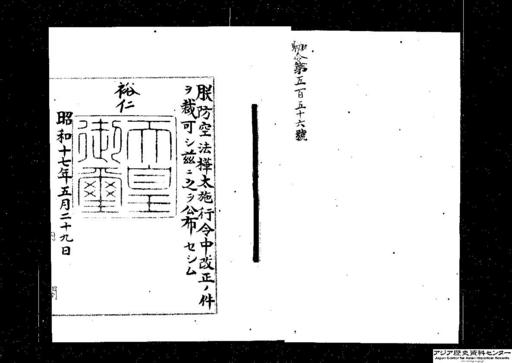 勅令第五百五十六號
朕防空法樺太施行令中改正ノ件
ヲ裁可シ茲ニ之ヲ公布セシム
裕仁
天皇
御璽
昭和十七年五月二十九日
アジア歴史資料センター
Japan Center for Asian Historical Records